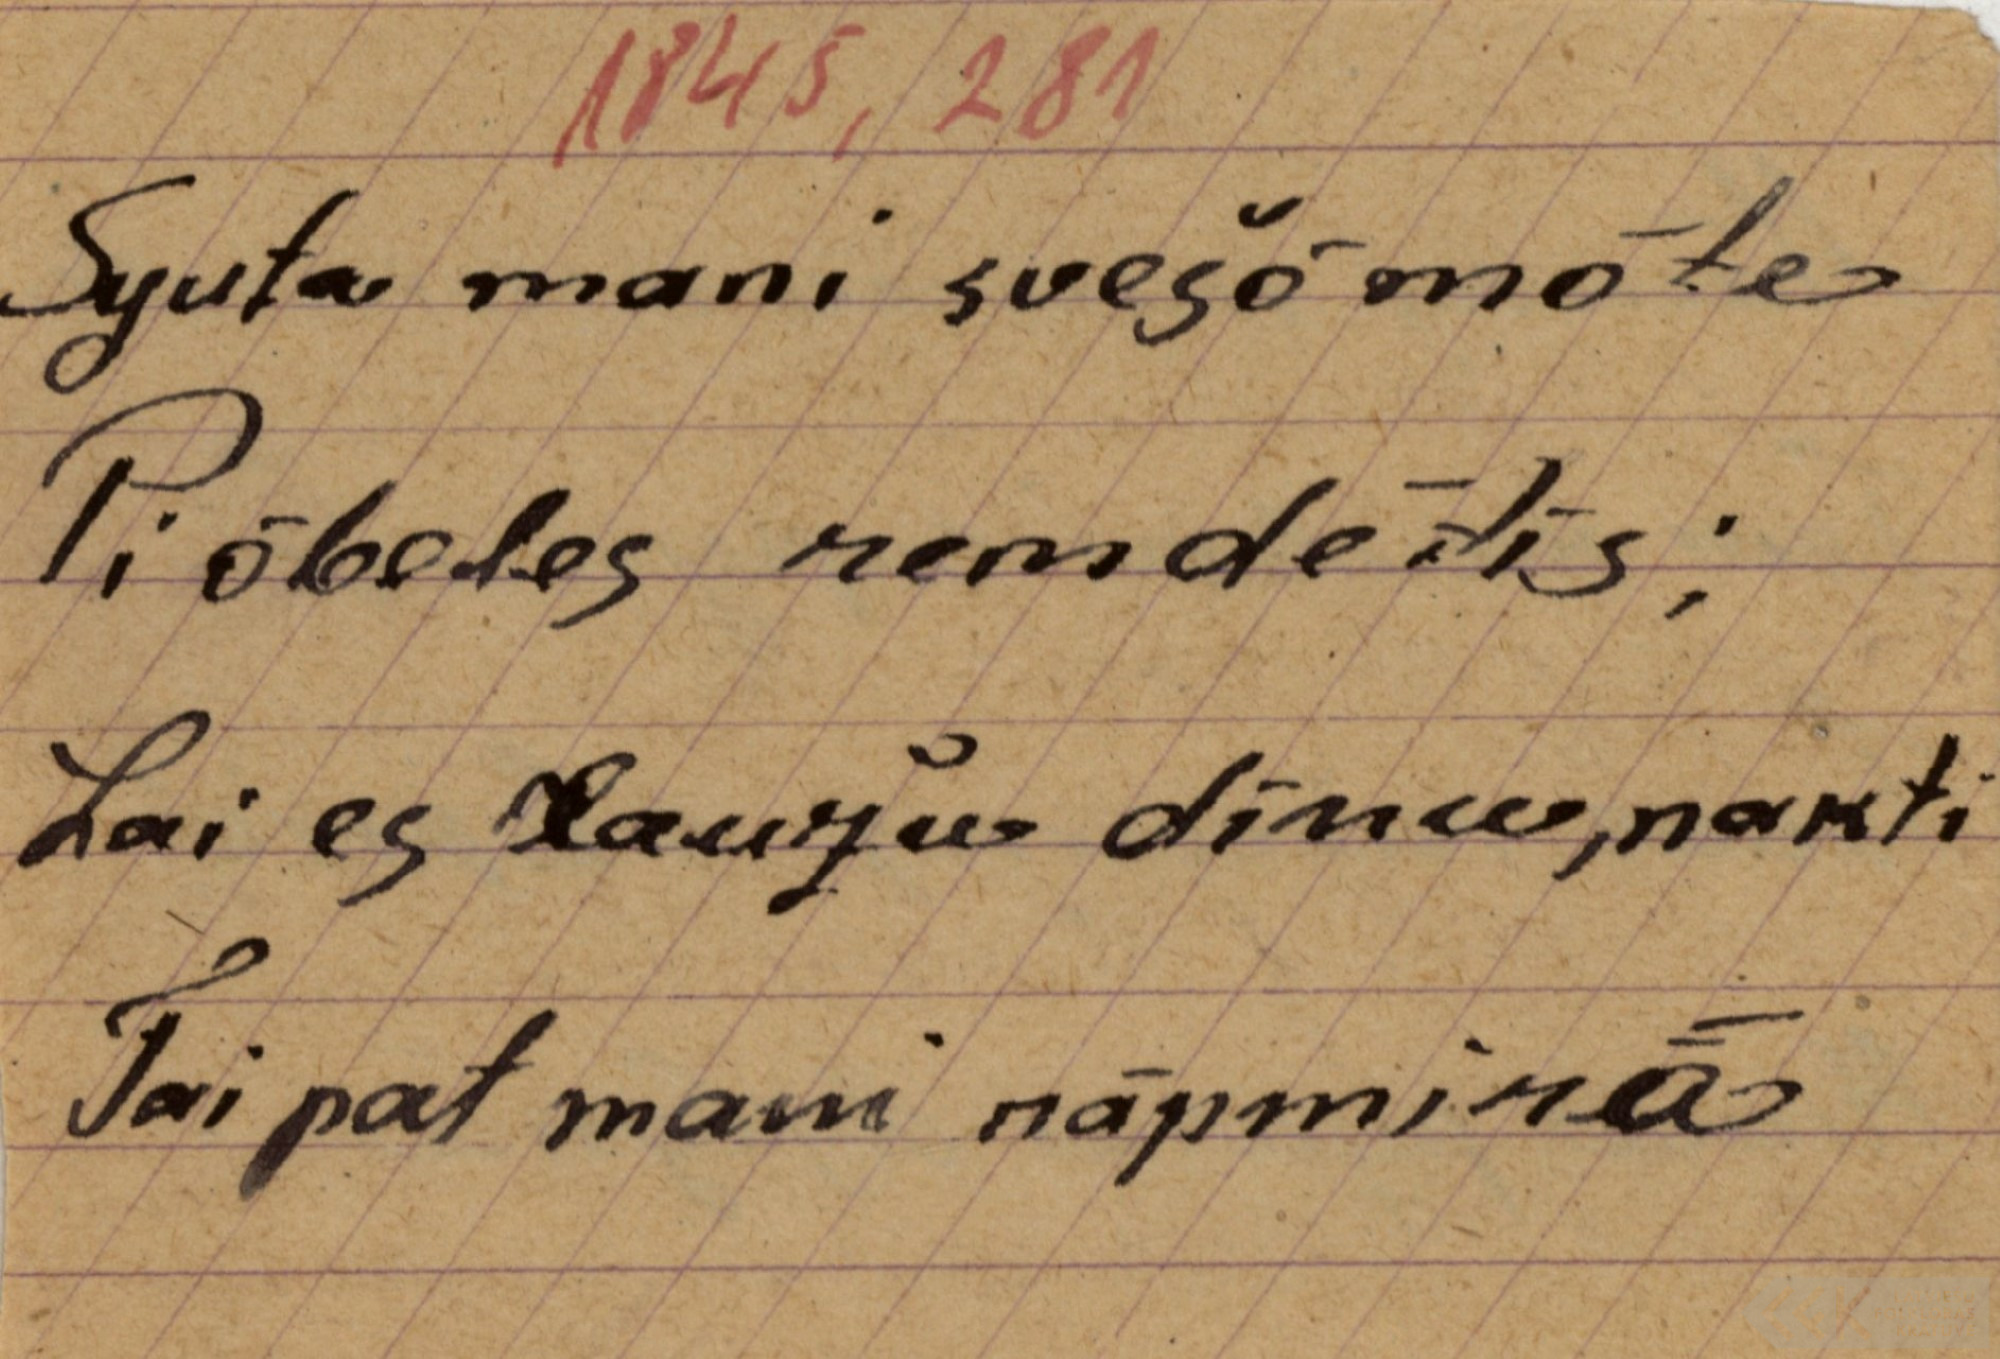 1845, 281
Syuta mani svešō mōte
Pi ōbeles remdētīs;
Lai es raužu dīnu, nakti
Tai pat mani nāpmirā